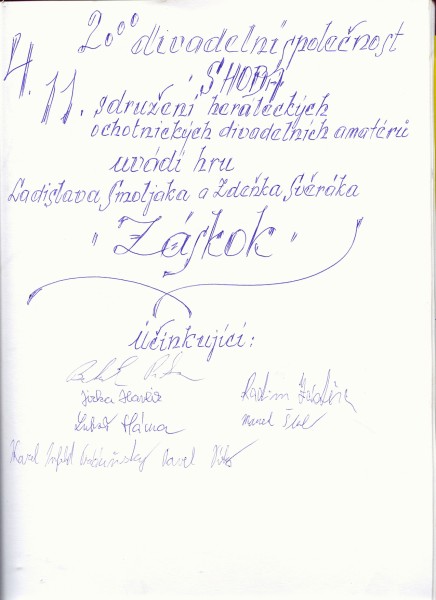 4. 11. 20⁰⁰ divadelní společnost
"SHODA"
sdružení heráleckých
ochotnických divadelních amatérů
uvádí hru
Ladislava Smoljaka a Zdeňka Svěráka
"Záskok"
Účinkující:
Jirka
Radim
Luboš Háma
Marek
Karel
Pavel